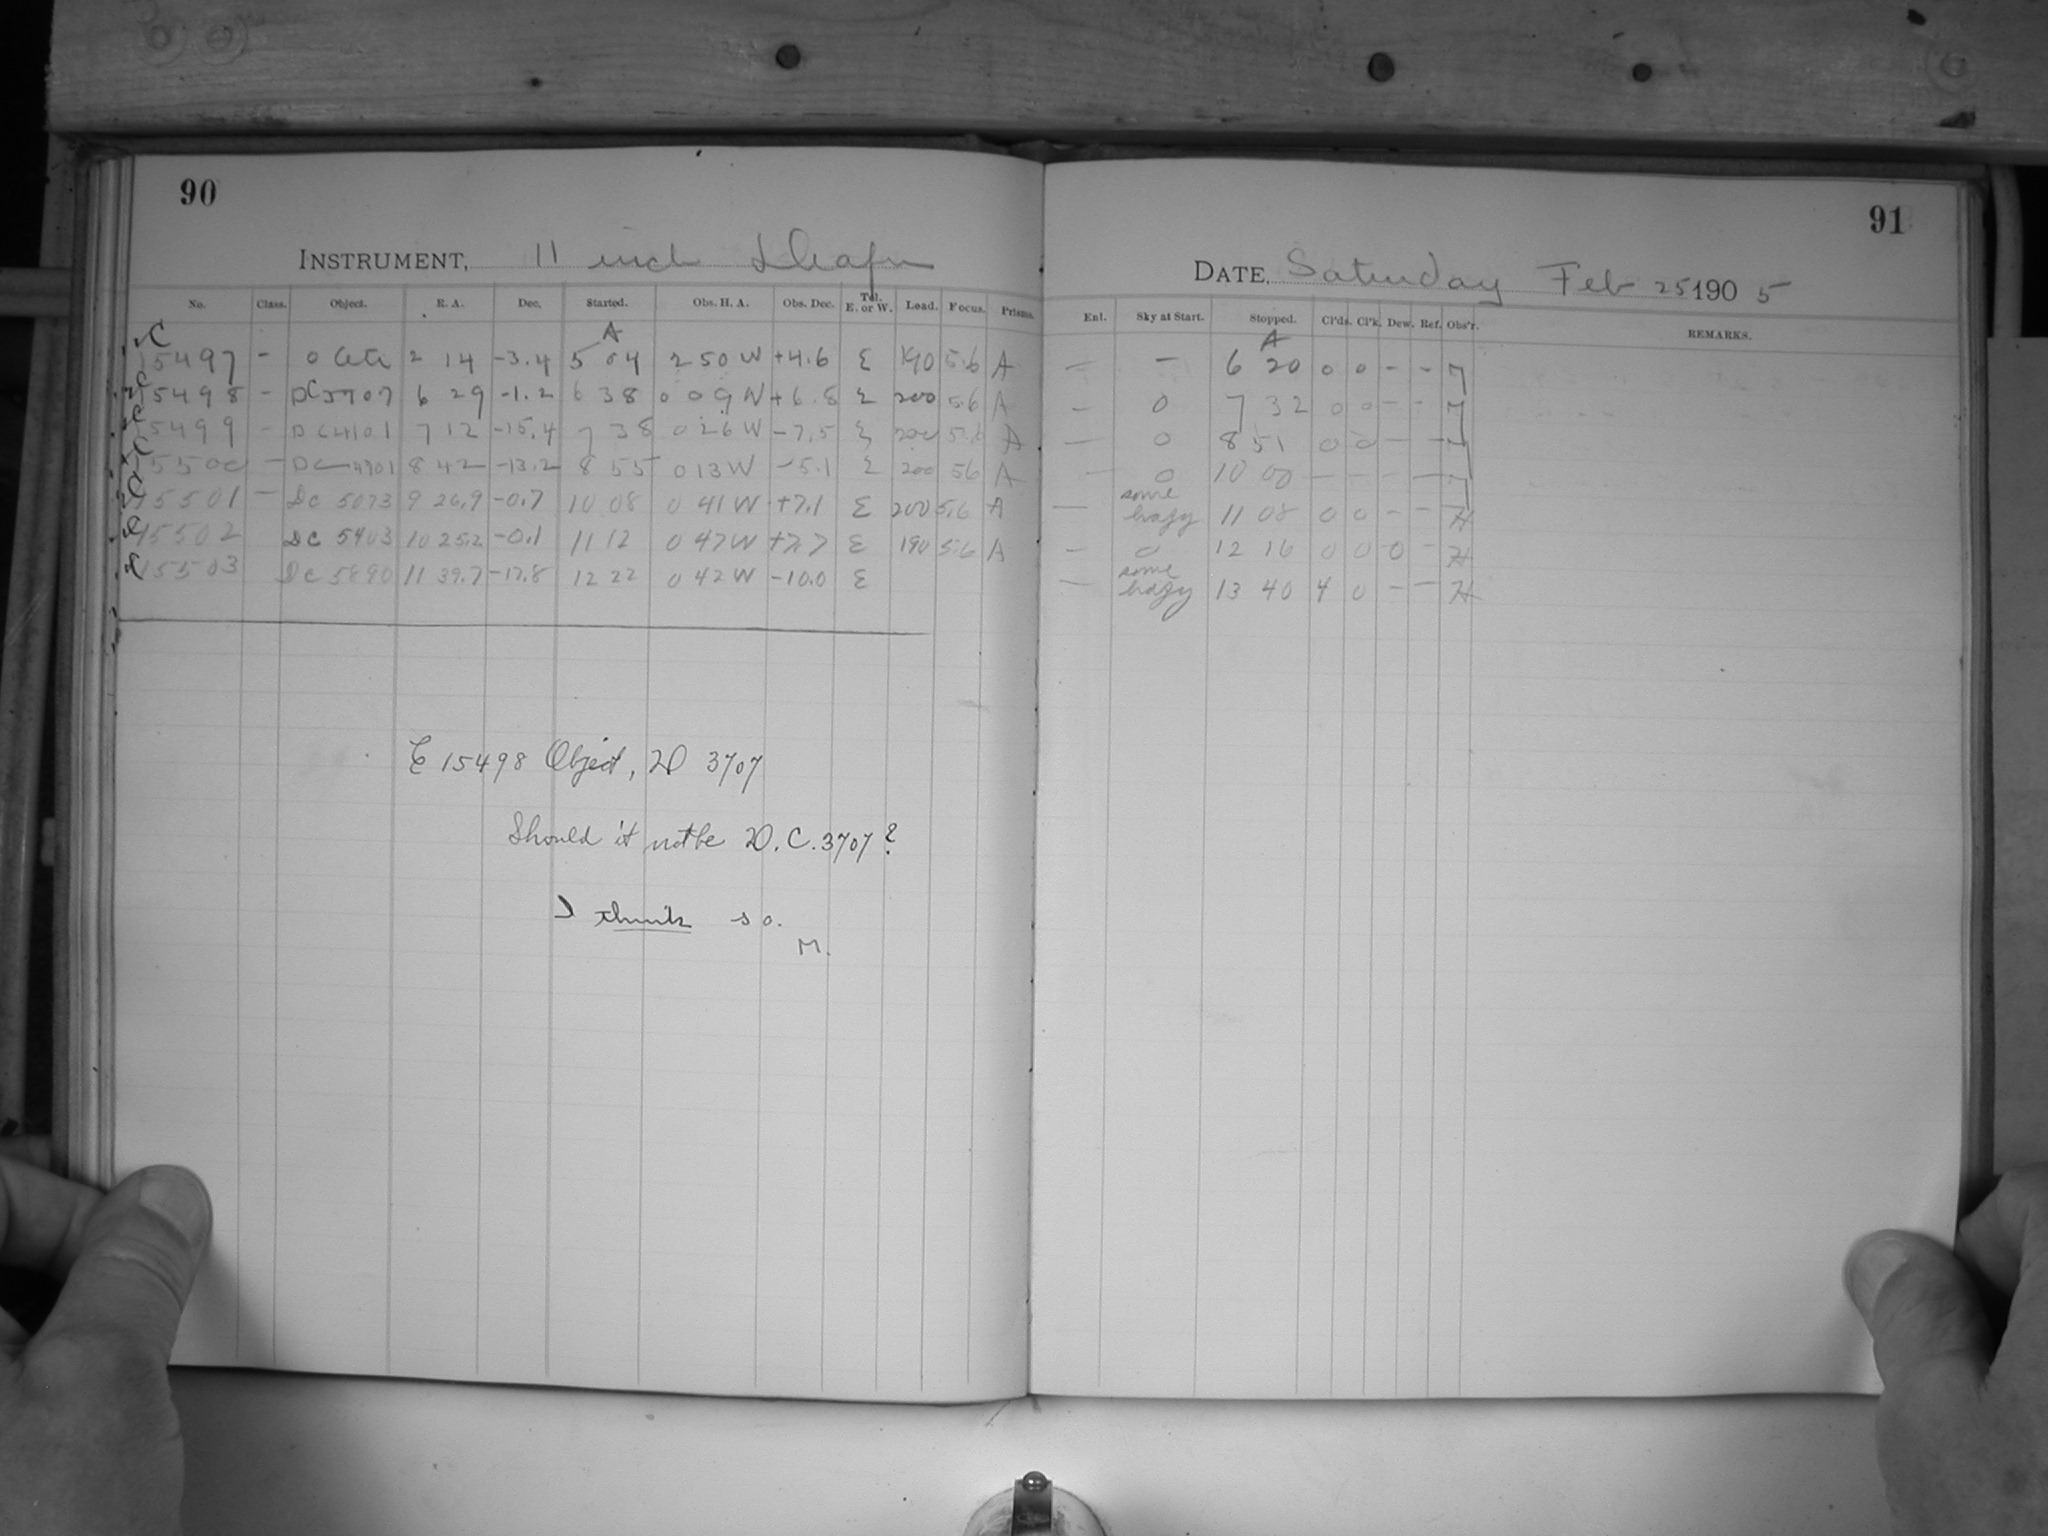 90
INSTRUMENT, 11 inch Draper
No. Class. Object. R. A. Dec. Started. Obs. H. A. Obs. Dec. Tel. E. or W. Load. Focus. Prisms.
A
C 15497 - o Ceti 2 14 -3.4 5 04 2 50 W +4.6 E 190 5.6 A
C 15498 - DC3707 6 29 -1.2 6 38 0 09 W +6.8 E 200 5.6 A
C 15499 - DC4101 7 12 -15.4 7 38 0 26 W -7.5 E 200 5.6 A
C 15500 - DC 4701 8 42 -13.2 8 55 0 13 W -5.1 E 200 56 A
C 15501 - DC 5073 9 26.9 -0.7 10 08 0 41 W +7.1 E 200 5.6 A
C 15502 DC 5403 10 25.2 -0.1 11 12 0 47 W +7.7 E 190 5.6 A
C 15503 DC 5890 11 39.7 -17.8 12 22 0 42 W -10.0 E
C 15498 Object, D 3707
Should it not be D. C. 3707?
I think so.
M.
91
DATE, Saturday Feb 25 1905
Enl. Sky at Start. Stopped. Cl'ds. Cl'k. Dew. Ref. Obs'r. REMARKS.
A
- - 6 20 0 0 - -
- 0 7 32 0 0 - -
- 0 8 51 0 0 - -
- 0 10 00 - - - -
- some hazy 11 08 0 0 - - H
- 0 12 16 0 0 0 - H
- some hazy 13 40 4 0 - - H